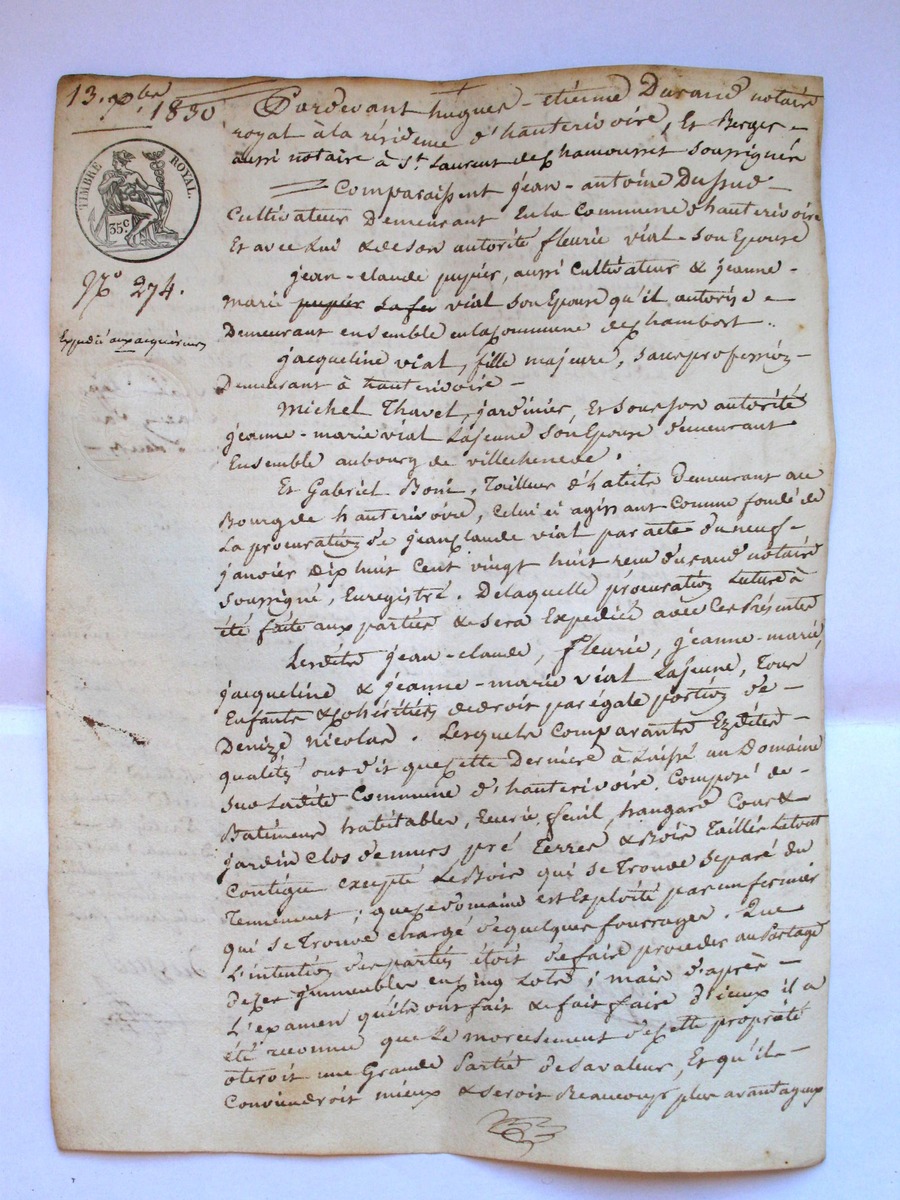 13. 9bre 1830
TIMBRE ROYAL.
35c
N.o 274.
Expédié aux acquéreurs
Pardevant hugues-etienne Durand notaire
royal à la résidence d'hauterivoire, Et Berger
aussi notaire à St. Laurent de Chamousset soussignés
Comparaissent jean-antoine Dussud
Cultivateur Demeurant En la Commune d'hauterivoire
Et avec lui & de son autorité fleurie vial son Epouse
jean-claude pupier, aussi Cultivateur & jeanne-
marie pupier Lafer vial son Epouse qu'il autorise
Demeurant ensemble en la Commune de Chambost.
jacqueline vial, fille majeure, sans profession
Demeurant à hauterivoire
Michel Thavel, jardinier, Et sous son autorité
jeanne-marie vial Lajeune son Epouse demeurant
Ensemble au bourg de villechenève.
Et Gabriel Boni, Tailleur d'habits Demeurant au
Bourg de hauterivoire, Celui ci agissant Comme fondé de
La procuration de jean Claude vial par acte du neuf
janvier Dix huit Cent vingt huit reçu durand notaire
soussigné, Enregistré. De laquelle procuration Lecture à
été faite aux parties & sera Expediée avec Ces Présentes
Lesdits jean-claude, fleurie, jeanne-marie
jacqueline & jeanne-marie vial Lajeune, Tous
Enfants & Cohéritiers de droit par égale portion de
Denize Nicolas. Lesquels Comparants Ezdites
qualités ont dit que Cette Dernière à Laissé un Domaine
sur Ladite Commune d'hauterivoire, Composé de
Batimens habitables, Ecurie, fenil, hangard Cour &
jardin clos de murs, pré Terres & Bois Taillis Le tout
Contigu excepté Le Bois qui se Trouve séparé du
Tennement; que Ce Domaine est Exploité par un fermier
qui se Trouve chargé de quelques fourrages. Que
L'intention des parties étoit de faire procéder au Partage
de Ces immeubles en Cinq Lots; mais d'après
L'examen qu'ils ont fait & fait faire d'iceux il a
été reconnu que Le morcellement de Cette propriété
oteroit une Grande Partie de sa valeur, Et qu'il
Conviendroit mieux & seroit Beaucoup plus avantageux